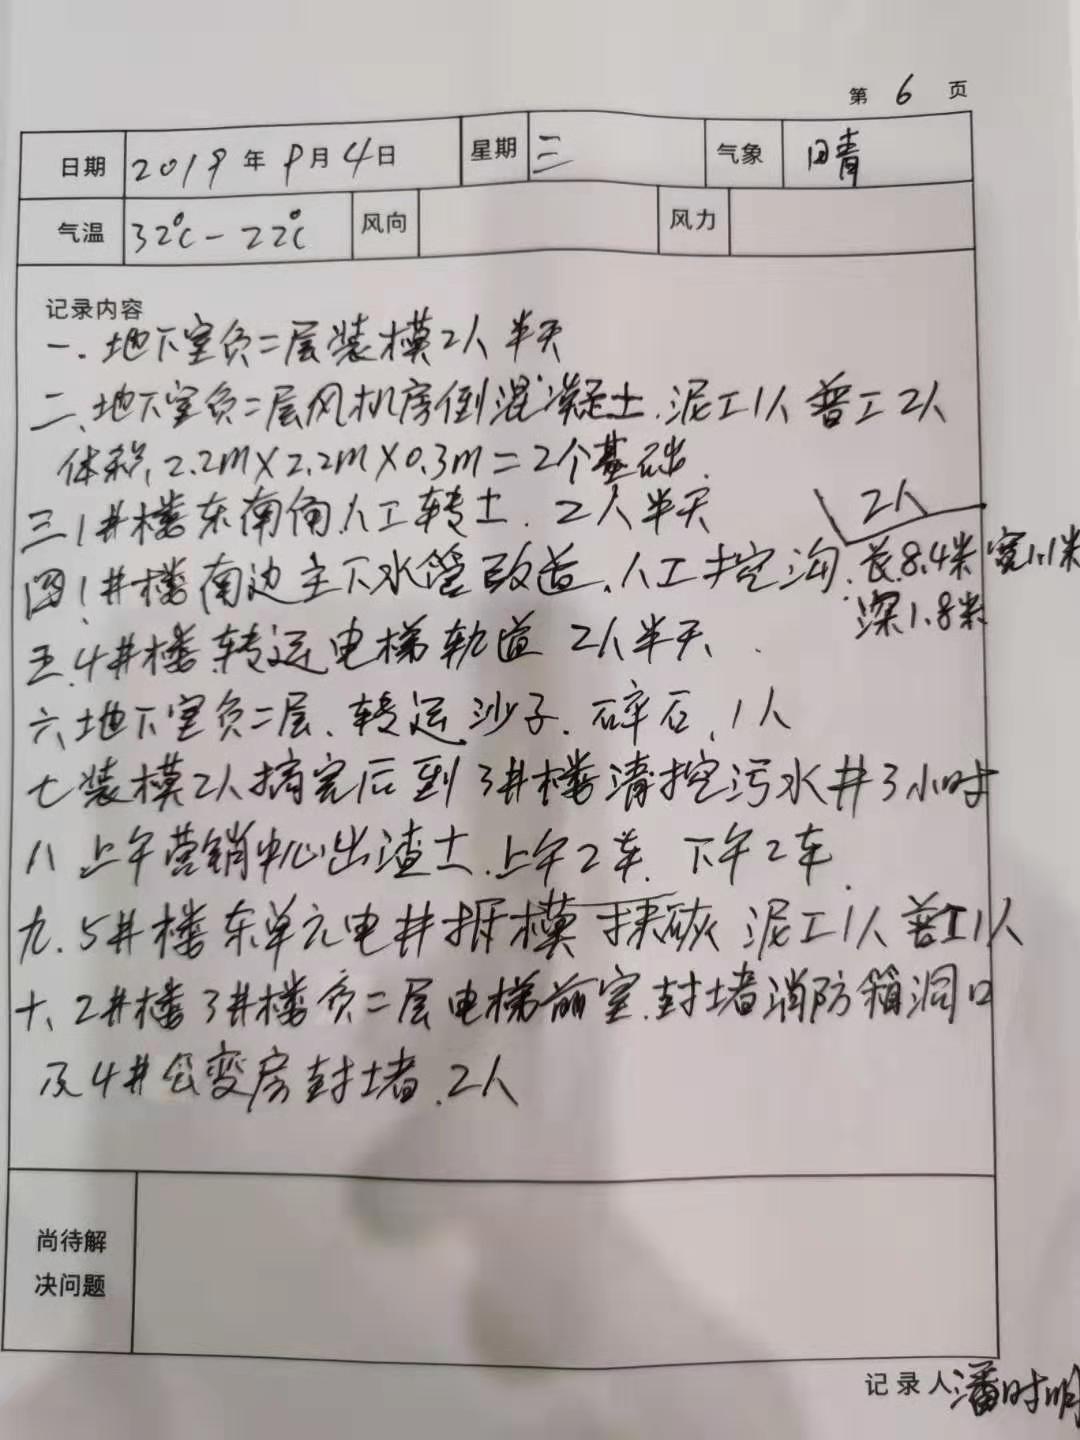 第 6 页
日期 2019年9月4日 星期 三 气象 晴
气温 32℃-22℃ 风向 风力
记录内容
一.地下室负二层装模2人半天
二、地下室负二层风机房倒混凝土.泥工1人普工2人
体积,2.2m×2.2m×0.3m=2个基础.
三1#楼东南角人工转土.2人半天
2人
四!1#楼南边主下水管改造.人工挖沟.长8.4米宽1.1米
深1.8米
五.4#楼转运电梯轨道 2人半天.
六、地下室负二层、转运沙子.碎石、1人
七装模2人搞完后到3#楼清挖污水井3小时
八 上午营销中心出渣土.上午2车.下午2车.
九.5#楼东单元电井拆模 抹灰 泥工1人普工1人
十、2#楼3#楼负二层电梯前室.封堵消防箱洞口
及4#公变房封堵.2人
尚待解
决问题
记录人 潘时明